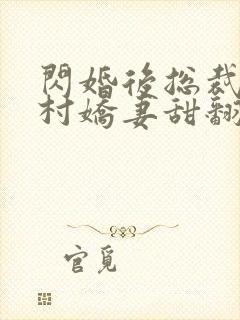 閃婚後總裁
村嬌妻甜翻
官覓